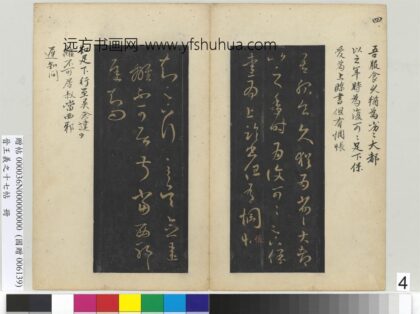 远方书画网-www.yfshuhua.com
四
吾服食久猶為劣劣大都
以之年時為復可可足下保
愛為上臨書但有惆悵
吾服食久猶為劣劣大都
比之年時為復可可足下保
愛為上臨書但有惆悵
知足下行至吳念違
離不可居叔當西耶
遲知問
知足下行至吳念違
離不可居叔當西耶
遲知問
贈帖 000036N000000000 (國贈 006139)
晉王羲之十七帖 冊
4